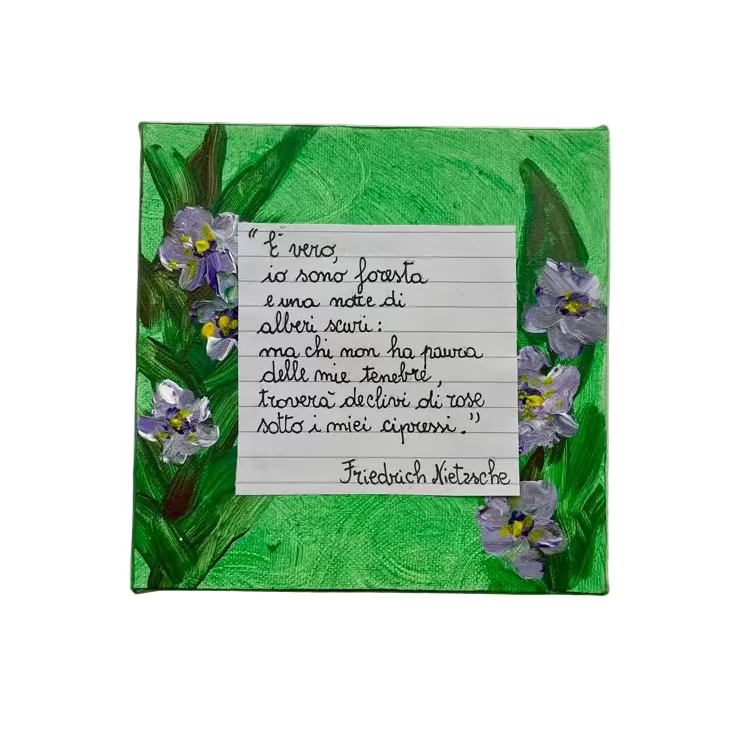 "È vero,
io sono foresta
e una notte di
alberi scuri:
ma chi non ha paura
delle mie tenebre,
troverà declivi di rose
sotto i miei cipressi."
Friedrich Nietzsche